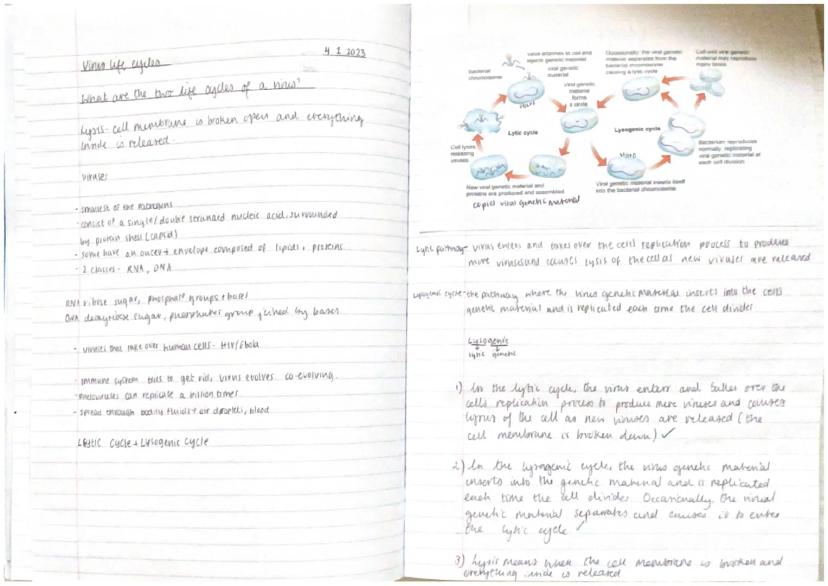 4.1.2023
Virus life cycles
What are the two life cycles of a virus?
Lysis- cell membrane is broken open and everything
inside is released.
Viruses
- smallest of the
- consist of a single/double stranded nucleic acid, surrounded
by protein shell (capsid)
- some have an outer envelope composed of lipids, proteins
- 2 classes- RNA, DNA
RNA ribose sugar, phosphate groups + bases
DNA deoxyribose sugar, phosphate group joined by bases
- viruses that take over human cells- HIV/Ebola
- immune system tries to get rid, virus evolves co-evolving.
- can replicate a billion times
- spread through bodily fluids + air droplets, blood
Lytic Cycle + Lysogenic Cycle
virus attaches to cell and
injects genetic material
bacterial
chromosome
viral genetic
material
viral genetic
material
forms
a circle
Occasionally, the viral genetic
material separates from the
bacterial chromosome
causing a lytic cycle
Cell with viral genetic
material may reproduce
many times
Lytic cycle
Lysogenic cycle
Cell lyses
releasing
viruses
Bacterium reproduces
normally, replicating
viral genetic material at
each cell division
New viral genetic material and
proteins are produced and assembled
Viral genetic material inserts itself
into the bacterial chromosome
capsid viral genetic material
Lytic pathway- virus enters and takes over the cells replication process to produce
more viruses and causes lysis of the cell as new viruses are released
Lysogenic cycle- the pathway where the virus genetic material inserts into the cells
genetic material and is replicated each time the cell divides
Lysogenic
lytic genetic
1) In the lytic cycle, the virus enters and takes over the
cells replication process to produce more viruses and causes
lysis of the cell as new viruses are released (the
cell membrane is broken down) ✓
2) In the lysogenic cycle, the virus genetic material
inserts into the genetic material and is replicated
each time the cell divides. Occasionally, the viral
genetic material separates and causes it to enter
the lytic cycle ✓
3) Lysis means when the cell membrane is broken and
everything inside is released